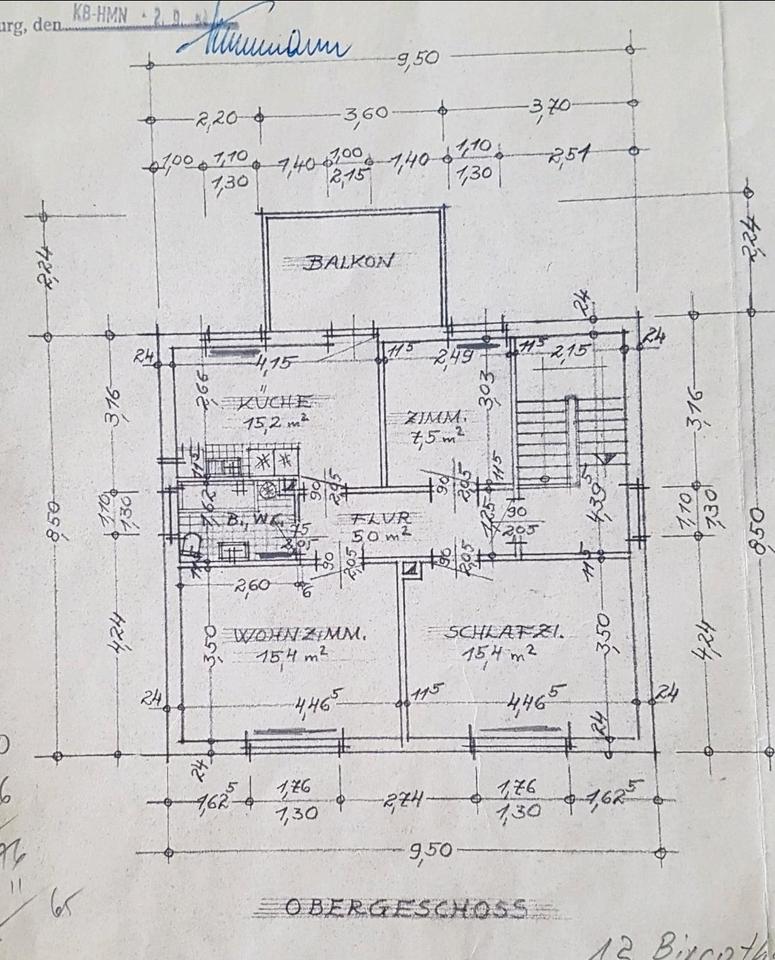 urg, den KB-HMN · 2. 9.
9,50
2,20 3,60 3,70
1,00 1,10 1,40 1,00 1,40 1,10 2,51
1,30 2,15 1,30
2,24 2,24
BALKON
24
24 4,15 11⁵ 2,49 11⁵ 2,15 24
3,16 2,66 3,03 3,16
KÜCHE
15,2 m²
ZIMM.
7,5 m²
11⁵ 11⁵
90 2,05 90 2,05 4,39⁵
1,10 1,30 1,62 1,25 90 1,10 1,30
2,05
B., WC.
FLUR
5,0 m²
8,50 8,50
90 2,05 90 2,05 11⁵
2,60 6
4,24 3,50 3,50 4,24
WOHNZIMM.
15,4 m²
SCHLAFZI.
15,4 m²
24 4,46⁵ 11⁵ 4,46⁵ 24
24 24
1,62⁵ 1,76 2,74 1,76 1,62⁵
1,30 1,30
9,50
65
OBERGESCHOSS